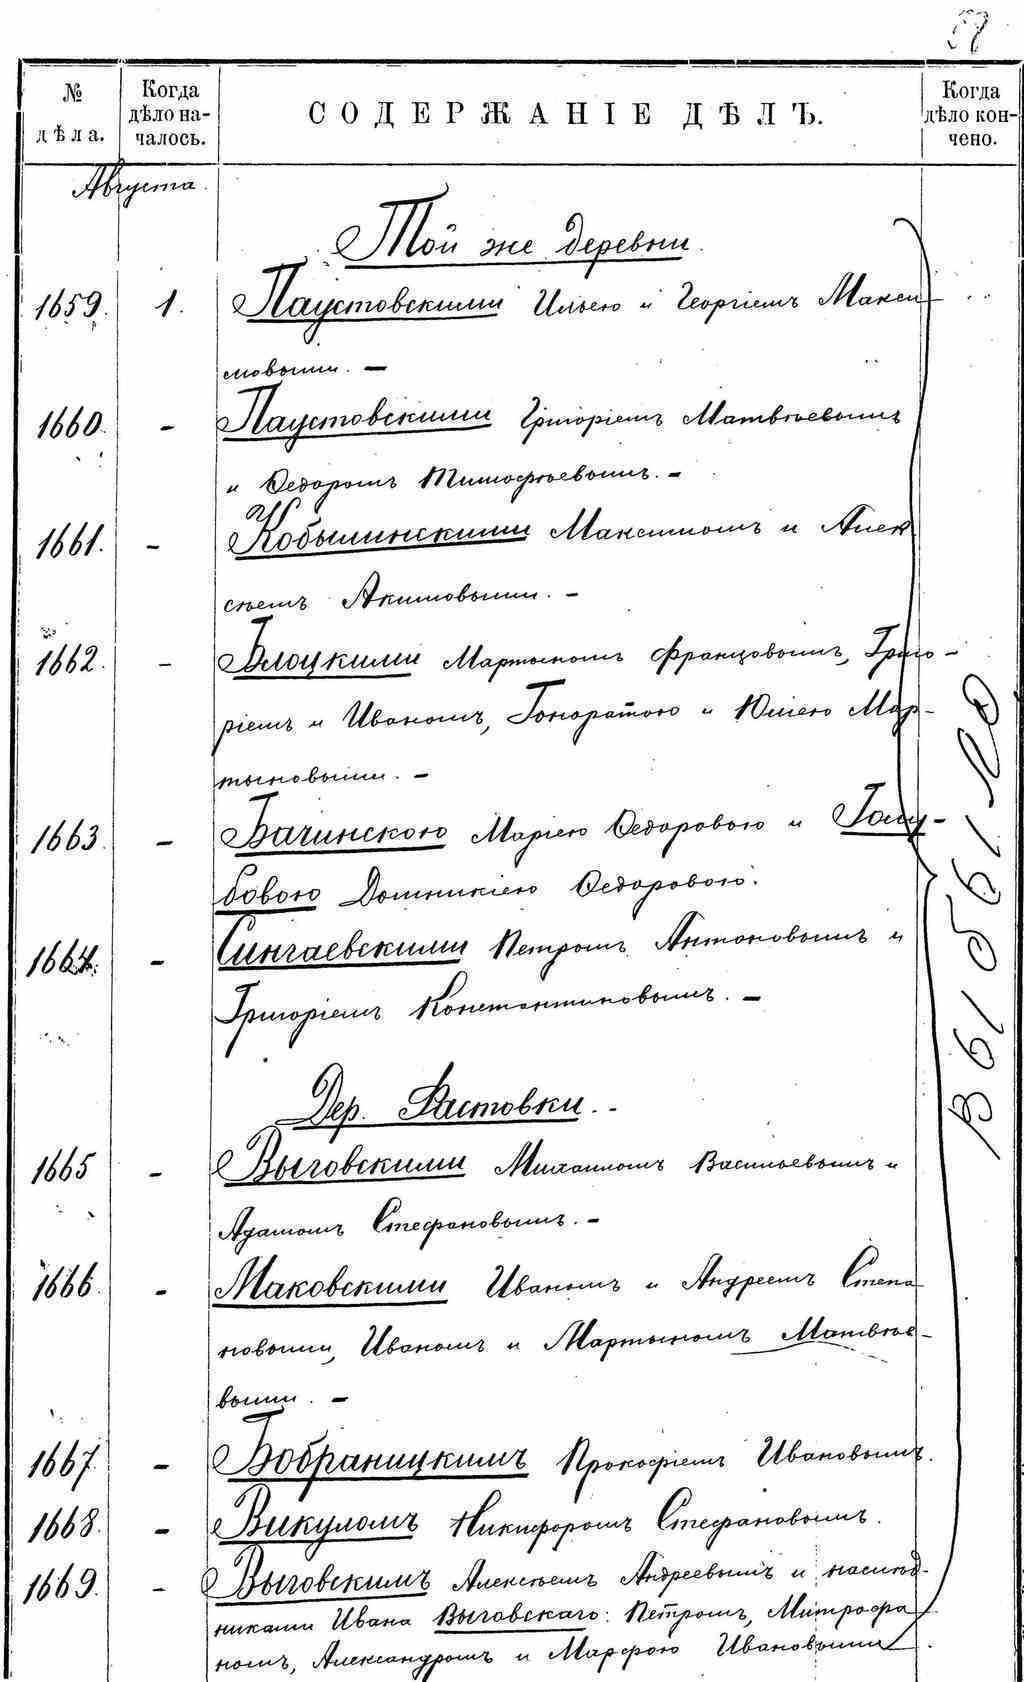 № дѣла.
Когда дѣло на-чалось.
СОДЕРЖАНІЕ ДѢЛЪ.
Когда дѣло кон-чено.
Августа.
Той же деревни.
1659. 1. Паустовскими Ильею и Георгіемъ Макси-
мовыми. —
1660. – Паустовскими Григоріемъ Матвѣевымъ
и Ѳедоромъ Тимофѣевымъ. —
1661. – Кобылинскими Максимомъ и Алек
сѣемъ Акимовыми. —
1662. – Блоцкими Мартыномъ Францовымъ, Григо-
ріемъ и Иваномъ, Гоноратою и Юліею Мар-
тыновыми. —
1663. – Бачинскою Маріею Ѳедоровою и Голу-
бовою Домникіею Ѳедоровою.
1664. – Сингаевскими Петромъ Антоновымъ и
Григоріемъ Константиновымъ. —
Дер. Растовки. -
1665 – Выговскими Михаиломъ Васильевымъ и
Адамомъ Стефановымъ. —
1666. – Маковскими Иваномъ и Андреемъ Степа
новыми, Иваномъ и Мартыномъ Матвѣе-
выми. —
1667. – Бобраницкимъ Прокофіемъ Ивановымъ.
1668. – Викуломъ Никифоромъ Стефановымъ.
1669. – Выговскимъ Алексѣемъ Андреевымъ и наслѣд-
никами Ивана Выговскаго: Петромъ, Митрофа
номъ, Александромъ и Марфою Ивановыми.